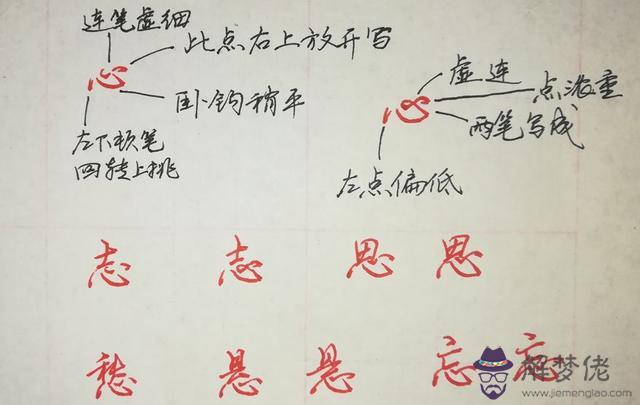 连笔虚细
心
此点右上放开写
卧钩稍平
左下顿笔
回转上挑
心
虚连
点凝重
两笔写成
左点偏低
志 志 思 思
愁 悬 悬 忘 忘
解梦佬
www.jiemenglao.com